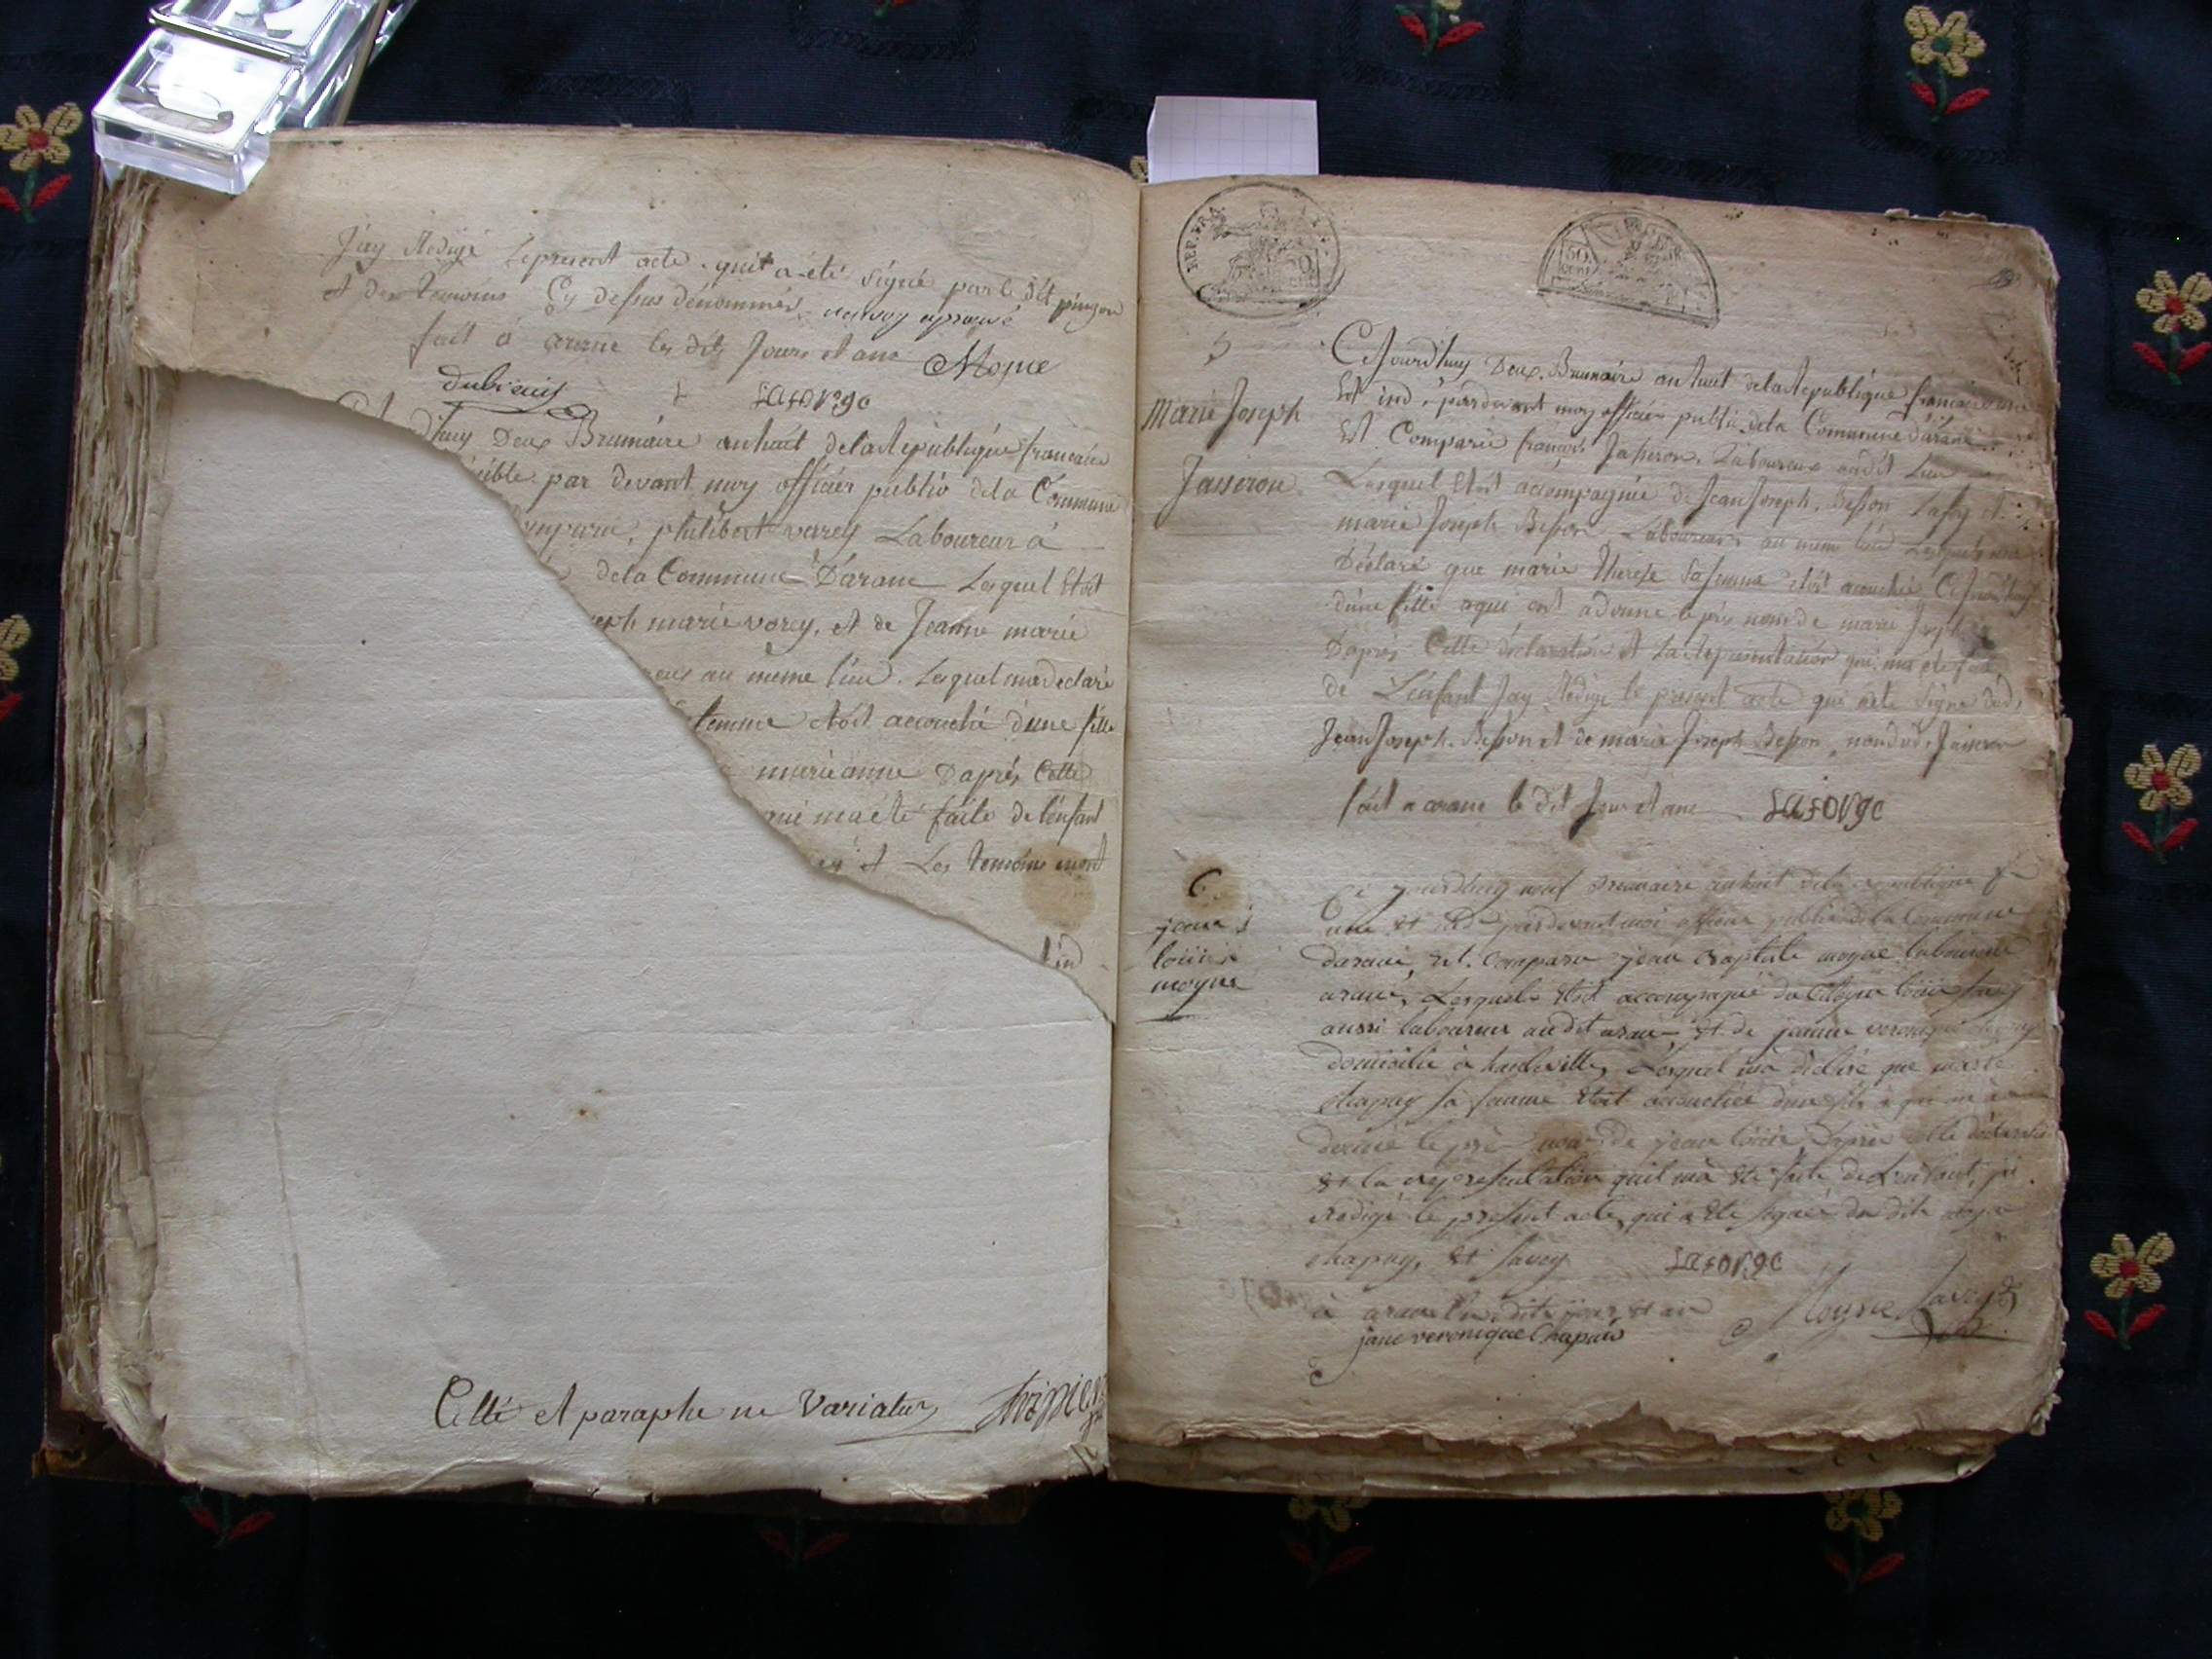 J'ay Redigé le present acte quit a été signé par le dit pingon
et des temoins Cy dessus dénommés
fait à arane les dits Jours et ans Moyne
dubreuil Laforge
d'huy Deux Brumaire an huit de la Republique francaise
sible par devant moy officier public de la Commune
omparu, philibert varey Laboureur à
de la Commune D'arane Lequel Etoit
seph marie varey, et de Jeanne marie
au même lieu. Lequel m'a declaré
femme etoit accouché d'une fille
marieanne D'après Cette
qui m'a été faite de l'enfant
et Les temoins m'ont
ind
Cotté et paraphé ne Variatur
REP. FRA.
50 CENT
5
Marie Joseph
Jasseron
Cejourd'huy Deux Brumaire an huit de la Republique francaise une
Et ind. pardevant moy officier public de la Commune d'arane
Et Comparu françois Jasseron, Laboureur audit Lieu
Lequel Etoit accompagnée de Jean Joseph, Besson Lafay et
marie Joseph Besson, Laboureurs au meme lieu Lequel m'a
Déclaré que marie Therese sa femme etoit accouchée Cejourd'huy
d'une fille a qui ont a donné le pré nom de marie Joseph
D'après Cette déclaration et La Representation qui m'a eté faite
de L'enfant Jay Redigé le present acte qui a eté Signé dud,
Jean Joseph Besson et de marie Joseph Besson, non dud. Jasseron
fait a arane le dit Jour et an Laforge
6
jean
loüis
moyne
Ce jourdhuy neuf Brumaire an huit de la republique
une et ind pardevant moi officier public de la commune
darane, Et. Comparu jean Baptiste moyne laboureur
arane, Lesquels Etoit accompagné du Citoyen loüis Savey
aussi laboureur audit arane, Et de jeanne veronique chapuy
domicilié à hauteville, Lequel m'a déclaré que marie
chapuy sa femme Etoit accouchée d'un fils à qui on à
donné le pré nom de jean loüis D'après cette déclaration
Et la representation quil m'a Eté faite de L'enfant, j'ai
Redigé le present acte, qui a Eté signée du dit moyne
chapuy, Et Savey Laforge
à arane les dits jour et an Moyne Savey
jane veronique Chapuis